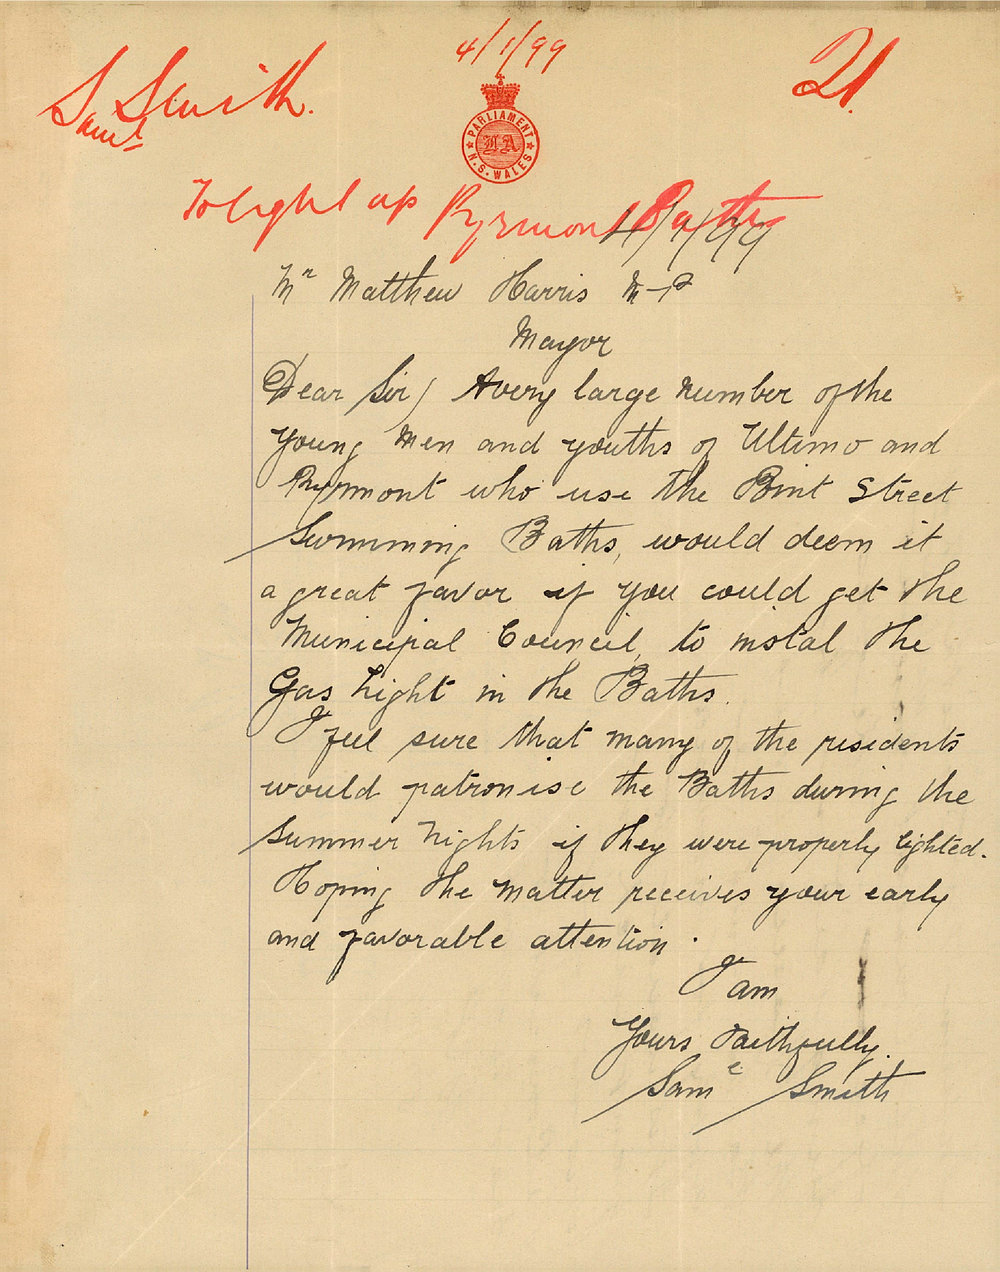 4/1/99
21
Saml Smith.
PARLIAMENT
LA
N.S. WALES
To light up Pyrmont Baths
4/1/99
Mr Matthew Harris M-P
Mayor
Dear Sir) A very large number of the
Young Men and youths of Ultimo and
Pyrmont who use the Point Street
Swimming Baths, would deem it
a great favor if you could get the
Municipal Council, to instal the
Gas Light in the Baths.
I feel sure that many of the residents
would patronise the Baths during the
Summer Nights if they were properly lighted.
Hoping the matter receives your early
and favorable attention.
I am
Yours Faithfully.
Saml Smith